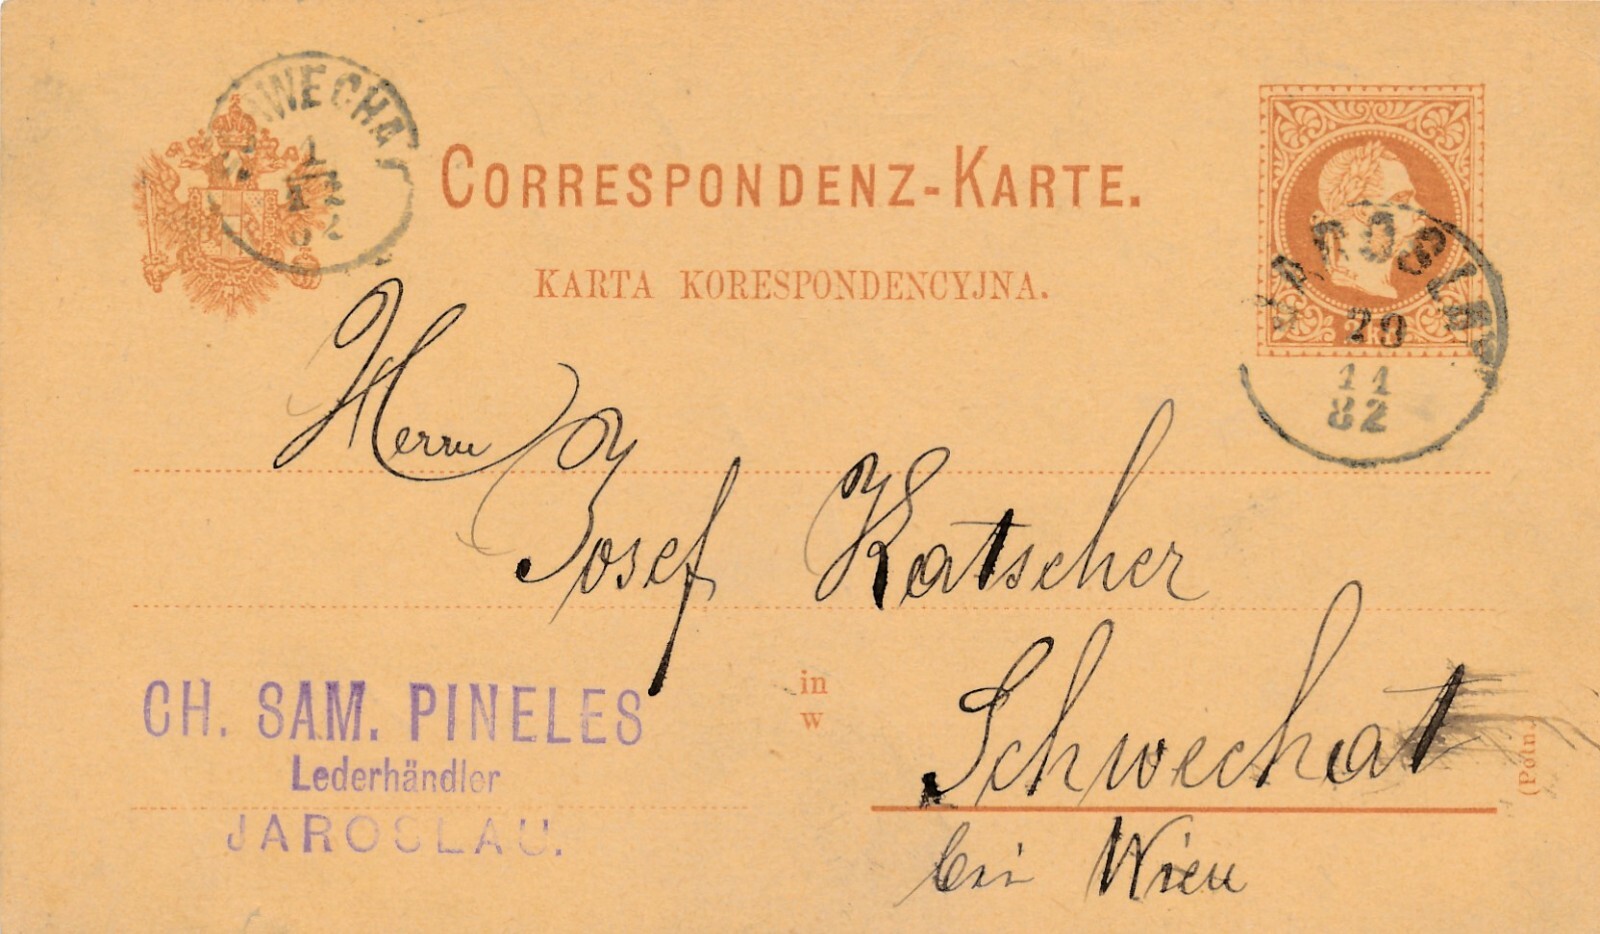 CORRESPONDENZ-KARTE.
KARTA KORESPONDENCYJNA.
2 Kr.
JAROSLAU
29
11
82
1
12
82
Herrn
Josef Katscher
in
w
Schwechat
bei Wien
CH. SAM. PINELES
Lederhändler
JAROSLAU.
(Poln.)